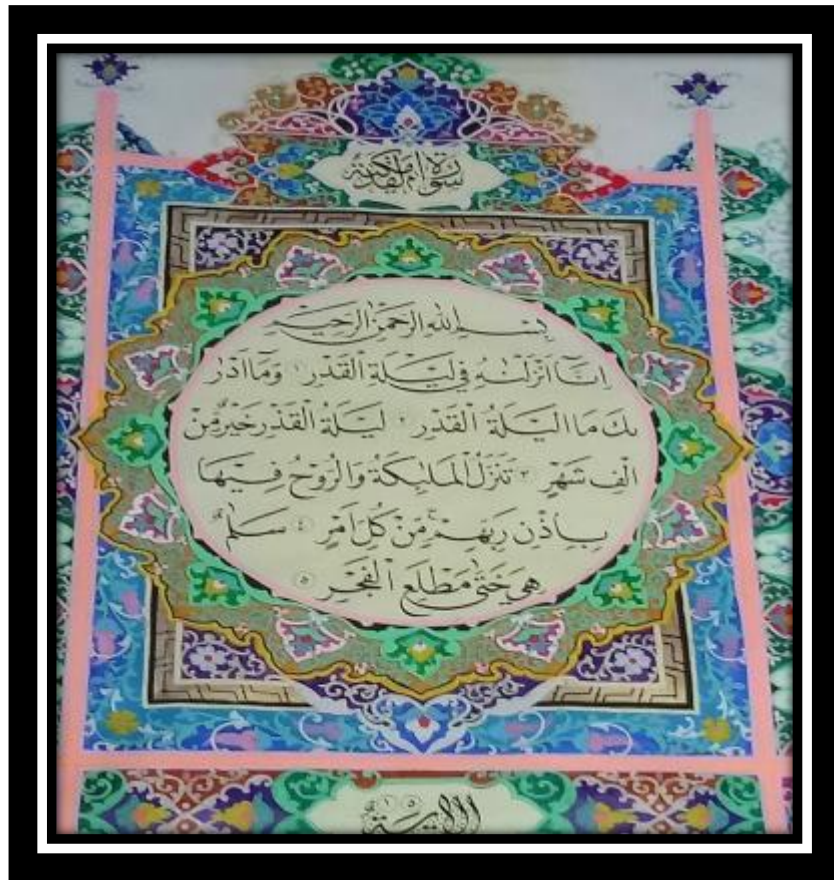 سورة القدر مكية
بسم الله الرحمن الرحيم
اِنَّٓا اَنْزَلْنٰهُ فِي لَيْلَةِ الْقَدْرِ ١ وَمَٓا اَدْرٰ
ىكَ مَا لَيْلَةُ الْقَدْرِ ٢ لَيْلَةُ الْقَدْرِ خَيْرٌ مِنْ
اَلْفِ شَهْرٍ ٣ تَنَزَّلُ الْمَلٰٓئِكَةُ وَالرُّوْحُ فِيْهَا
بِاِذْنِ رَبِّهِمْ مِنْ كُلِّ اَمْرٍ ٤ سَلٰمٌ
هِيَ حَتّٰى مَطْلَعِ الْفَجْرِ ٥